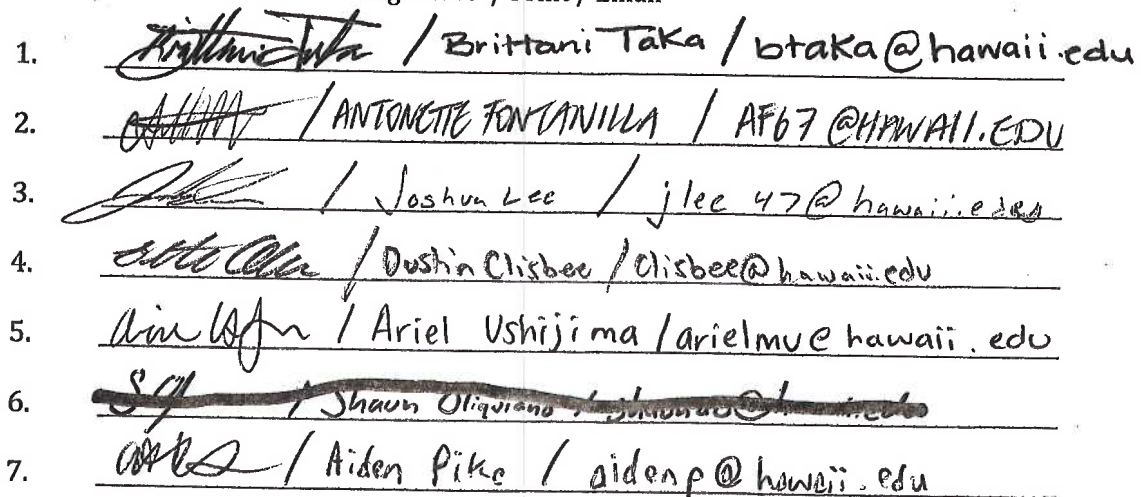 1. / Brittani Taka / btaka@hawaii.edu
2. / ANTONETTE FONTANILLA / AF67@HAWAII.EDU
3. / Joshua Lee / jlee47@hawaii.edu
4. / Dustin Clisbee / Clisbee@hawaii.edu
5. / Ariel Ushijima / arielmu@hawaii.edu
6. / Shaun
7. / Aiden Pike / aidenp@hawaii.edu